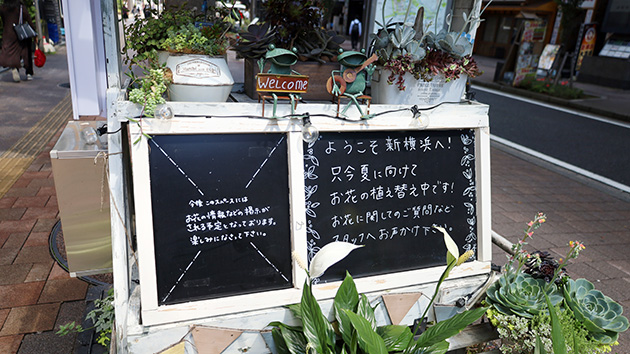 Welcome
今後このスペースには
お花の情報などの掲示が
される予定となっております。
楽しみになさって下さい。
ようこそ新横浜へ!
只今夏に向けて
お花の植え替え中です!
お花に関してのご質問など
スタッフへお声かけ下さい。